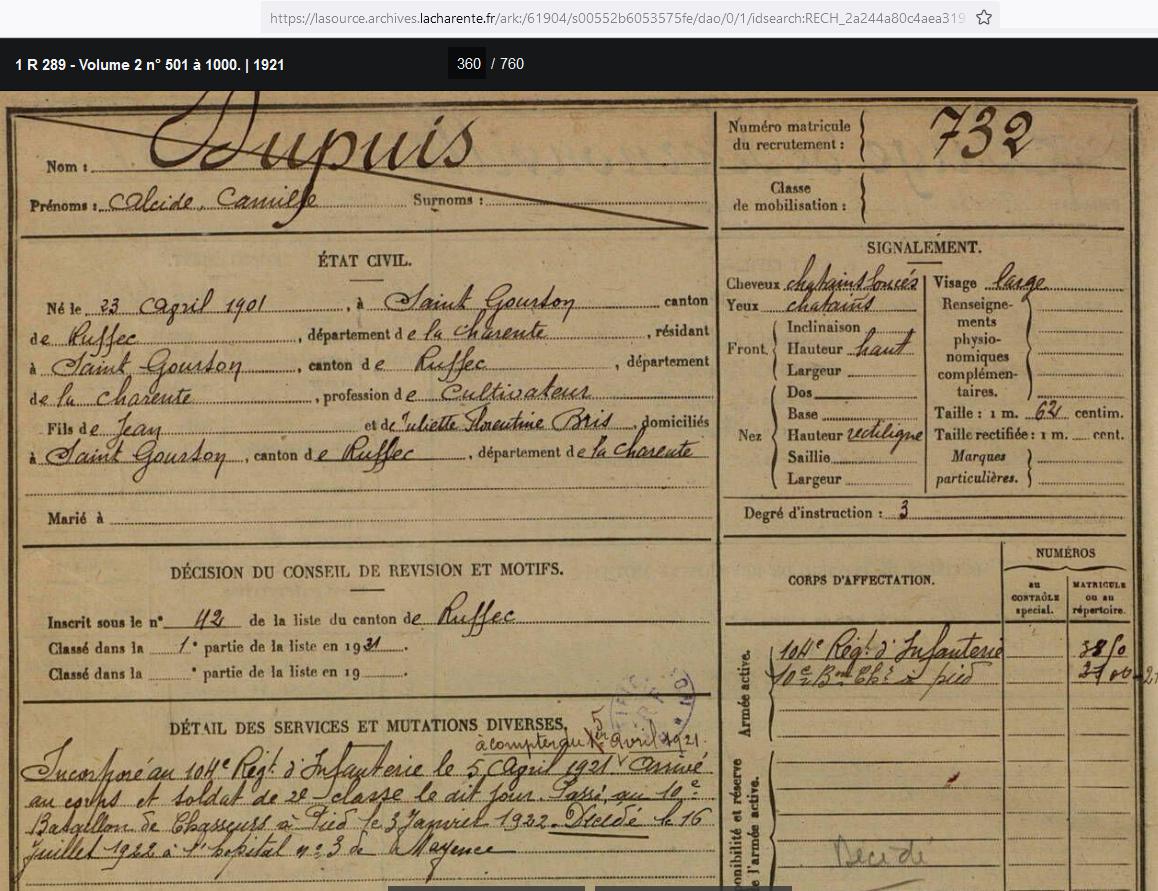 https://lasource.archives.lacharente.fr/ark:/61904/s00552b6053575fe/dao/0/1/idsearch:RECH_2a244a80c4aea319
1 R 289 - Volume 2 n° 501 à 1000. | 1921
360 / 760
Nom : Dupuis
Prénoms : Alcide, Camille Surnoms :
Numéro matricule du recrutement : 732
Classe de mobilisation :
ÉTAT CIVIL.
Né le 23 Avril 1901, à Saint Gourson canton
de Ruffec, département de la Charente, résidant
à Saint Gourson, canton de Ruffec, département
de la Charente, profession de Cultivateur
Fils de Jean et de Juliette Florentine Bris, domiciliés
à Saint Gourson, canton de Ruffec, département de la Charente
Marié à
SIGNALEMENT.
Cheveux chatains foncés
Yeux chatains
Front
Inclinaison
Hauteur haut
Largeur
Nez
Dos
Base
Hauteur rectiligne
Saillie
Largeur
Visage large
Renseigne-
ments
physio-
nomiques
complémen-
taires.
Taille : 1 m. 62 centim.
Taille rectifiée : 1 m. cent.
Marques
particulières.
Degré d'instruction : 3
DÉCISION DU CONSEIL DE REVISION ET MOTIFS.
Inscrit sous le n° 42 de la liste du canton de Ruffec
Classé dans la 1e partie de la liste en 1921.
Classé dans la e partie de la liste en 19
CORPS D'AFFECTATION.
NUMÉROS
au
CONTRÔLE
spécial.
MATRICULE
ou au
répertoire.
Armée active.
104e Régt d'Infanterie
10e Bon Chrs à pied
DÉTAIL DES SERVICES ET MUTATIONS DIVERSES.
à compter du 5 avril 1921.
Incorporé au 104e Régt d'Infanterie le 5 Avril 1921. Arrivé
au corps et soldat de 2e classe le dit jour. Passé au 10e
Bataillon de Chasseurs à Pied le 3 Janvier 1922. Décédé le 16
Juillet 1922 à l'hôpital n° 3 de Mayence
ponibilité et réserve
e l'armée active.
Décédé